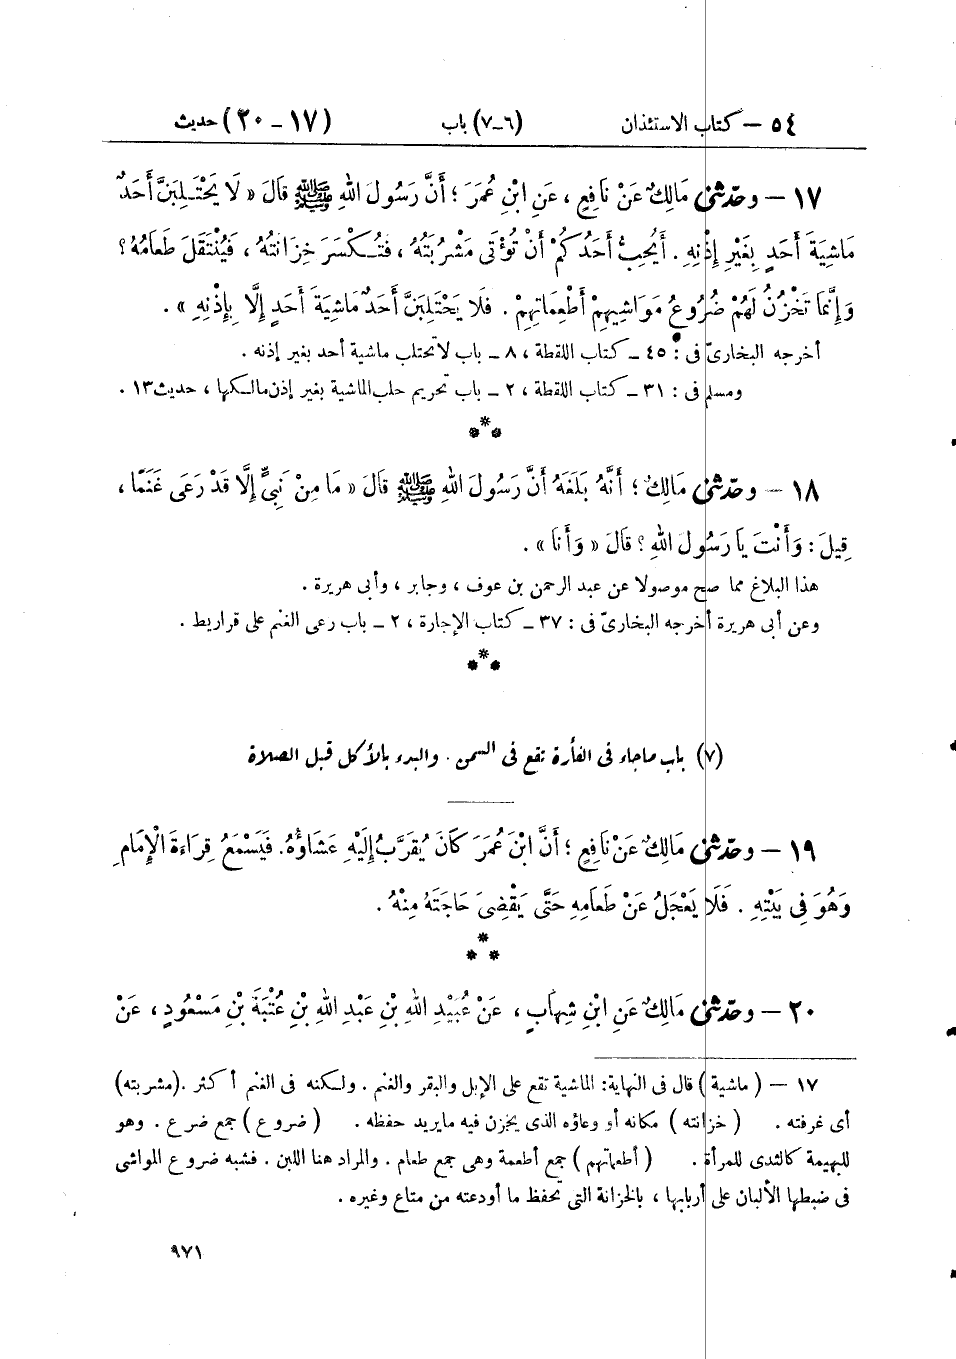 ٥٤ – كتاب الاستئذان (٦-٧) باب (١٧ – ٢٠) حديث
١٧ – وحدّثنى مَالِكٌ عَنْ نَافِعٍ ، عَنِ ابْنِ عُمَرَ ؛ أَنَّ رَسُولَ اللهِ ﷺ قَالَ « لَا يَحْتَلِبَنَّ أَحَدٌ
مَاشِيَةَ أَحَدٍ بِغَيْرِ إِذْنِهِ . أَيُحِبُّ أَحَدُكُمْ أَنْ تُؤْتَى مَشْرُبَتُهُ ، فَتُكْسَرَ خِزَانَتُهُ ، فَيُنْتَقَلَ طَعَامُهُ ؟
وَإِنَّمَا تَخْزُنُ لَهُمْ ضُرُوعُ مَوَاشِيهِمْ أَطْعِمَاتِهِمْ . فَلَا يَحْتَلِبَنَّ أَحَدٌ مَاشِيَةَ أَحَدٍ إِلَّا بِإِذْنِهِ » .
أخرجه البخارىّ فى : ٤٥ – كتاب اللقطة ، ٨ – باب لا تحتلب ماشية أحد بغير إذنه .
ومسلم فى : ٣١ – كتاب اللقطة ، ٢ – باب تحريم حلب الماشية بغير إذن مالكها ، حديث ١٣ .
***
١٨ – وحدّثنى مَالِكٌ ؛ أَنَّهُ بَلَغَهُ أَنَّ رَسُولَ اللهِ ﷺ قَالَ « مَا مِنْ نَبِيٍّ إِلَّا قَدْ رَعَى غَنَمًا ،
قِيلَ : وَأَنْتَ يَا رَسُولَ اللهِ ؟ قَالَ « وَأَنَا » .
هذا البلاغ مما صح موصولا عن عبد الرحمن بن عوف ، وجابر ، وأبى هريرة .
وعن أبى هريرة أخرجه البخارىّ فى : ٣٧ – كتاب الإجارة ، ٢ – باب رعى الغنم على قراريط .
***
(٧) باب ما جاء فى الفأرة تقع فى السمن . والبدء بالأكل قبل الصلاة
١٩ – وحدّثنى مَالِكٌ عَنْ نَافِعٍ ؛ أَنَّ ابْنَ عُمَرَ كَانَ يُقَرَّبُ إِلَيْهِ عَشَاؤُهُ. فَيَسْمَعُ قِرَاءَةَ الْإِمَامِ
وَهُوَ فِى بَيْتِهِ . فَلَا يَعْجَلُ عَنْ طَعَامِهِ حَتَّى يَقْضِىَ حَاجَتَهُ مِنْهُ .
***
٢٠ – وحدّثنى مَالِكٌ عَنِ ابْنِ شِهَابٍ ، عَنْ عُبَيْدِ اللهِ بْنِ عَبْدِ اللهِ بْنِ عُتْبَةَ بْنِ مَسْعُودٍ ، عَنْ
١٧ – ( ماشية ) قال فى النهاية: الماشية تقع على الإبل والبقر والغنم . ولكنه فى الغنم أكثر . (مشربته)
أى غرفته . ( خزانته ) مكانه أو وعاؤه الذى يخزن فيه ما يريد حفظه . ( ضروع ) جمع ضرع . وهو
للبهيمة كالثدى للمرأة . ( أطعماتهم ) جمع أطعمة وهى جمع طعام . والمراد هنا اللبن . فشبه ضروع المواشى
فى ضبطها الألبان على أربابها ، بالخزانة التى تحفظ ما أودعته من متاع وغيره .
٩٧١